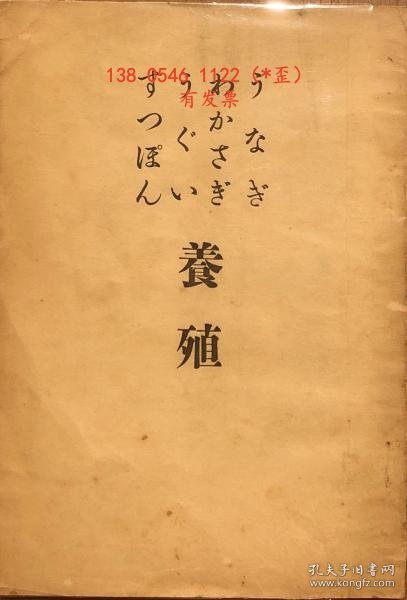 138 0546 1122 (*歪)
有发票
うなぎ
わかさぎ
うぐい
すつぽん
養殖
孔夫子旧书网
www.kongfz.com